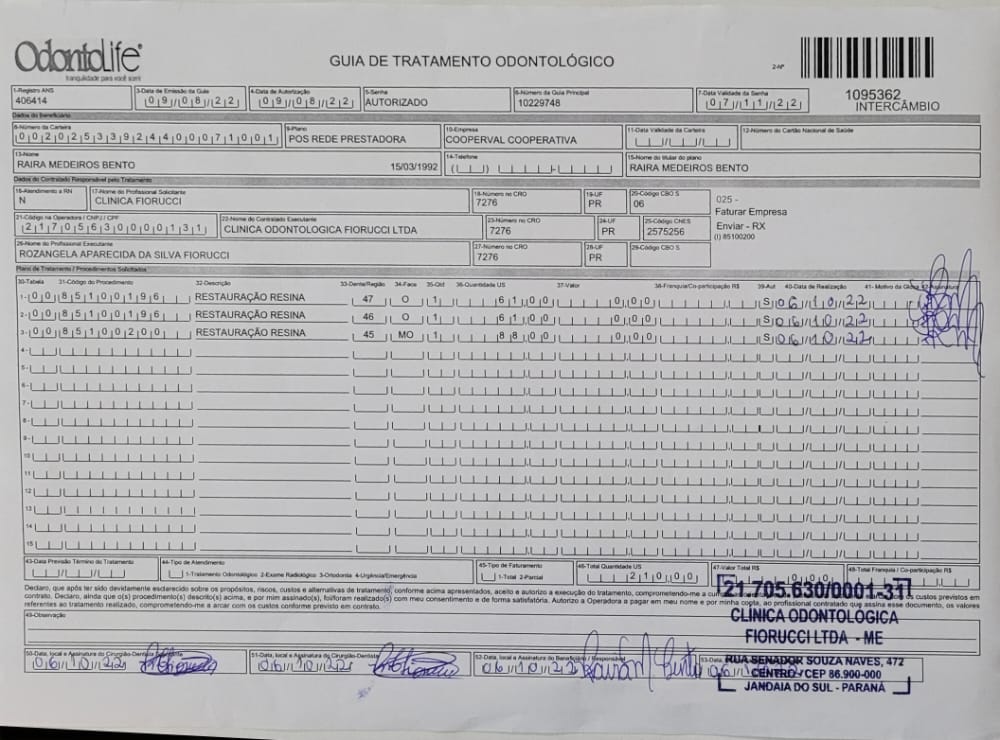 OdontoLife
tranquilidade para você sorrir
GUIA DE TRATAMENTO ODONTOLÓGICO
2-Nº
1095362
INTERCÂMBIO
1-Registro ANS 3-Data de Emissão da Guia 4-Data de Autorização 5-Senha 6-Número da Guia Principal 7-Data Validade da Senha
406414 09/08/22 09/08/22 AUTORIZADO 10229748 07/11/22
Dados do Beneficiário
8-Número da Carteira 9-Plano 10-Empresa 11-Data Validade da Carteira 12-Número do Cartão Nacional de Saúde
00202533924400071001 POS REDE PRESTADORA COOPERVAL COOPERATIVA
13-Nome 14-Telefone 15-Nome do titular do plano
RAIRA MEDEIROS BENTO 15/03/1992 RAIRA MEDEIROS BENTO
Dados do Contratado Responsável pelo Tratamento
16-Atendimento a RN 17-Nome do Profissional Solicitante 18-Número no CRO 19-UF 20-Código CBO S
N CLINICA FIORUCCI 7276 PR 06
025 -
Faturar Empresa
Enviar - RX
(I) 85100200
21-Código na Operadora / CNPJ / CPF 22-Nome do Contratado Executante 23-Número no CRO 24-UF 25-Código CNES
21705630000131 CLINICA ODONTOLOGICA FIORUCCI LTDA 7276 PR 2575256
26-Nome do Profissional Executante 27-Número no CRO 28-UF 29-Código CBO S
ROZANGELA APARECIDA DA SILVA FIORUCCI 7276 PR
Plano de Tratamento / Procedimentos Solicitados
30-Tabela 31-Código do Procedimento 32-Descrição 33-Dente/Região 34-Face 35-Qtd 36-Quantidade US 37-Valor 38-Franquia/Co-participação R$ 39-Aut 40-Data de Realização 41- Motivo da Glosa 42-Assinatura
1- 00 85100196 RESTAURAÇÃO RESINA 47 O 1 61,00 0,00 S 06/10/22
2- 00 85100196 RESTAURAÇÃO RESINA 46 O 1 61,00 0,00 S 06/10/22
3- 00 85100200 RESTAURAÇÃO RESINA 45 MO 1 88,00 0,00 S 06/10/22
4-
5-
6-
7-
8-
9-
10
11
12
13
14
15
43-Data Previsão Término do Tratamento 44-Tipo de Atendimento 45-Tipo de Faturamento 46-Total Quantidade US 47-Valor Total R$ 48-Total Franquia / Co-participação R$
1-Tratamento Odontológico 2-Exame Radiológico 3-Ortodontia 4-Urgência/Emergência 1-Total 2-Parcial 210,00
Declaro, que após ter sido devidamente esclarecido sobre os propósitos, riscos, custos e alternativas de tratamento, conforme acima apresentados, aceito e autorizo a execução do tratamento, comprometendo-me a custos previstos em
contrato. Declaro, ainda que o(s) procedimento(s) descrito(s) acima, e por mim assinado(s), foi/foram realizado(s) com meu consentimento e de forma satisfatória. Autorizo a Operadora a pagar em meu nome e por minha conta, ao profissional contratado que assina esse documento, os valores
referentes ao tratamento realizado, comprometendo-me a arcar com os custos conforme previsto em contrato.
49-Observação
50-Data, local e Assinatura do Cirurgião-Dentista Solicitante 51-Data, local e Assinatura do Cirurgião-Dentista 52-Data, local e Assinatura do Beneficiário / Responsável 53-Data
06/10/22 06/10/22 06/10/22 Raira M Bento 06/10/22
21 705.630/0001-31
CLÍNICA ODONTOLÓGICA
FIORUCCI LTDA - ME
RUA SENADOR SOUZA NAVES, 472
CENTRO - CEP 86.900-000
JANDAIA DO SUL - PARANÁ